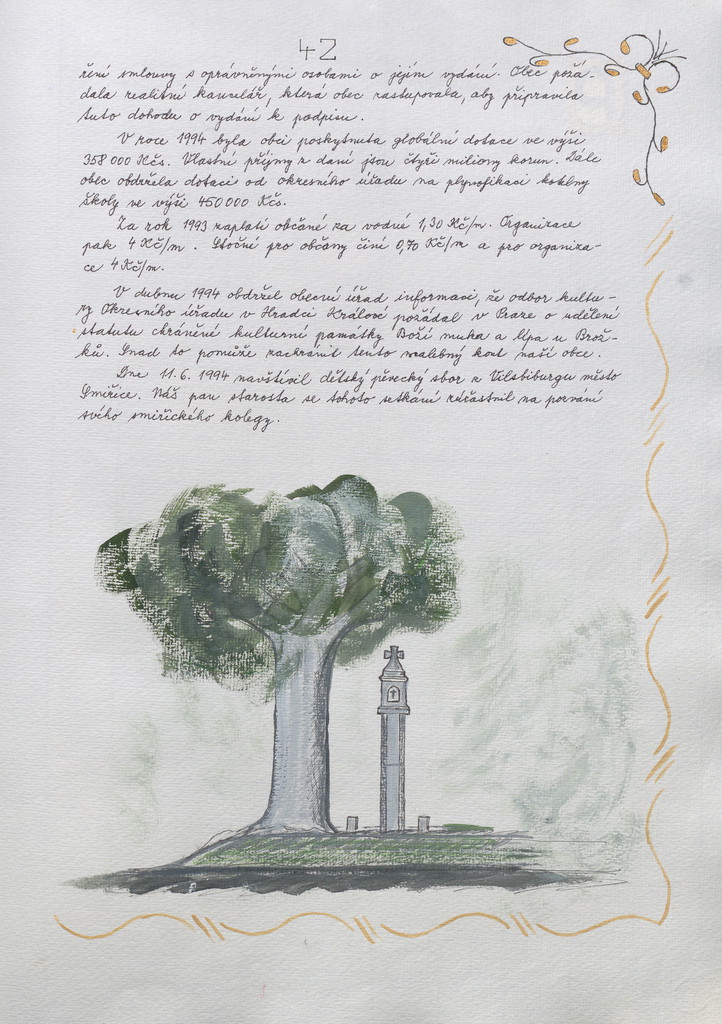 42
ření smlouvy s oprávněnými osobami o jejím vydání. Obec požá-
dala realitní kancelář, která obec zastupovala, aby připravila
tuto dohodu o vydání k podpisu.
V roce 1994 byla obci poskytnuta globální dotace ve výši
358 000 Kčs. Vlastní příjmy z daní jsou čtyři miliony korun. Dále
obec obdržela dotaci od okresního úřadu na plynofikaci kotelny
školy ve výši 450 000 Kčs.
Za rok 1993 zaplatí občané za vodné 1,30 Kč/m. Organizace
pak 4 Kč/m. Stočné pro občany činí 0,70 Kč/m a pro organiza-
ce 4 Kč/m.
V dubnu 1994 obdržel obecní úřad informaci, že odbor kultu-
ry Okresního úřadu v Hradci Králové požádal v Praze o udělení
statutu chráněné kulturní památky Boží muka a lípa u Brož-
ků. Snad to pomůže zachránit tento malebný kout naší obce.
Dne 11. 6. 1994 navštívil dětský pěvecký sbor z Vilsbiburgu město
Smiřice. Náš pan starosta se tohoto setkání zúčastnil na pozvání
svého smiřického kolegy.